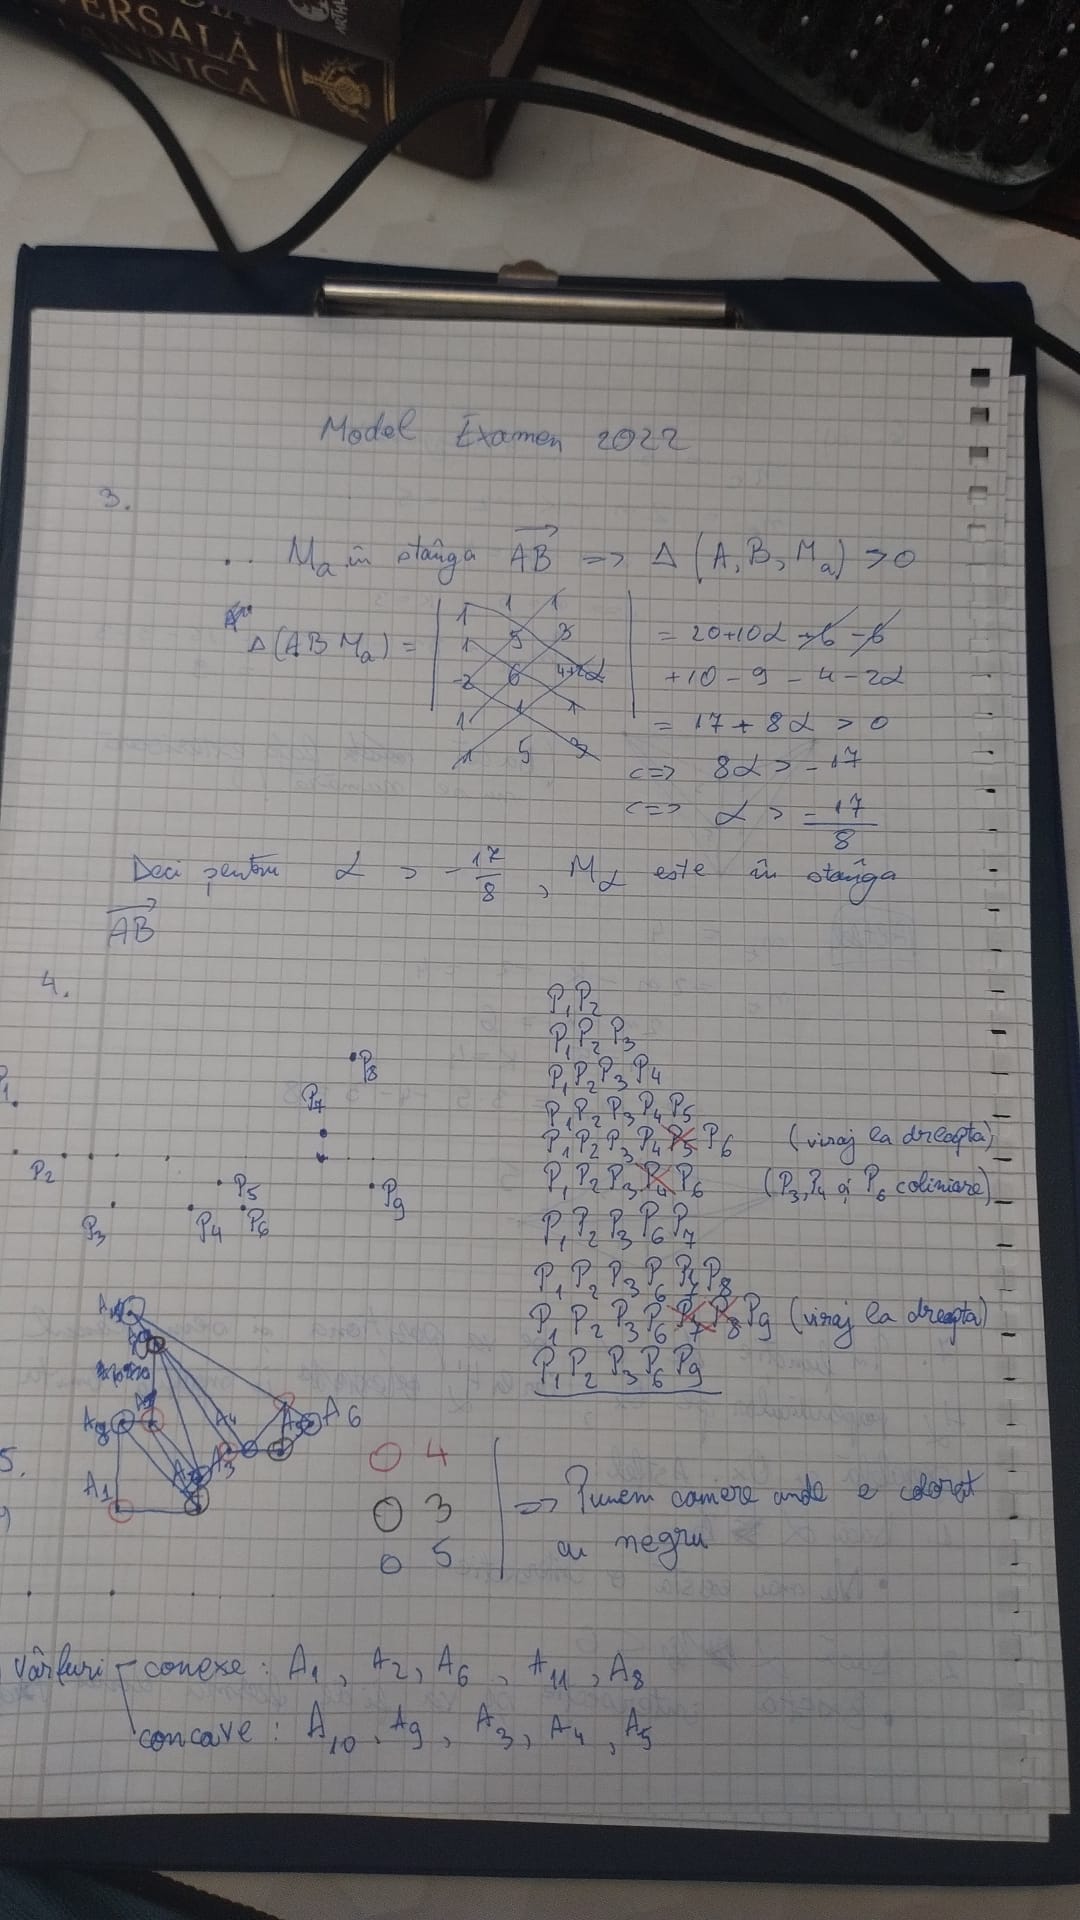 VERSALĂ
ANNICA
Model Examen 2022
3.
Ma în stânga AB => Δ (A, B, Ma) > 0
Δ(ABMa) =
1 1 1
1 5 3
-2 6 4+2α
1 1 1
1 5 3
= 20+10α +6 -6
+10 - 9 - 4 - 2α
= 17 + 8α > 0
<=> 8α > -17
<=> α > -17/8
Deci pentru α > -17/8, Mα este în stânga
AB
4.
P1
P2
P3
P4
P5
P6
P7
P8
P9
P1P2
P1P2P3
P1P2P3P4
P1P2P3P4P5
P1P2P3P4P5P6 (viraj la dreapta)
P1P2P3P4P6 (P3, P4 și P6 coliniare)
P1P2P3P6P7
P1P2P3P6P7P8
P1P2P3P6P7P8P9 (viraj la dreapta)
P1P2P3P6P9
5.
A1
A3
A4
A6
A8
4
3
5
=> Punem camere unde e colorat
cu negru
Vârfuri conexe: A1, A2, A6, A11, A8
concave: A10, A9, A3, A4, A5